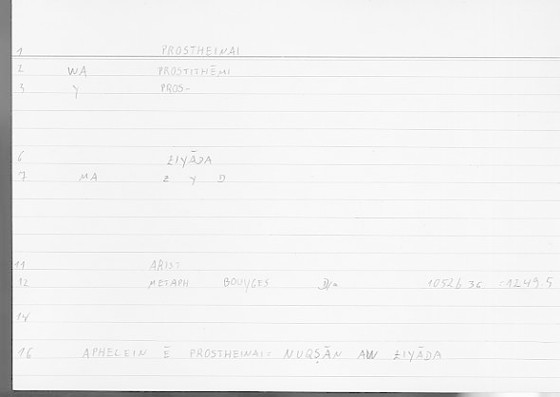 1 PROSTHEINAI
2 WA PROSTITHĒMI
3 Y PROS-
6 ZIYĀDA
7 MA Z Y D
11 ARIST
12 METAPH BOUYGES 1052b 36 =1249.5
14
16 APHELEIN Ē PROSTHEINAI= NUQṢĀN AW ZIYĀDA